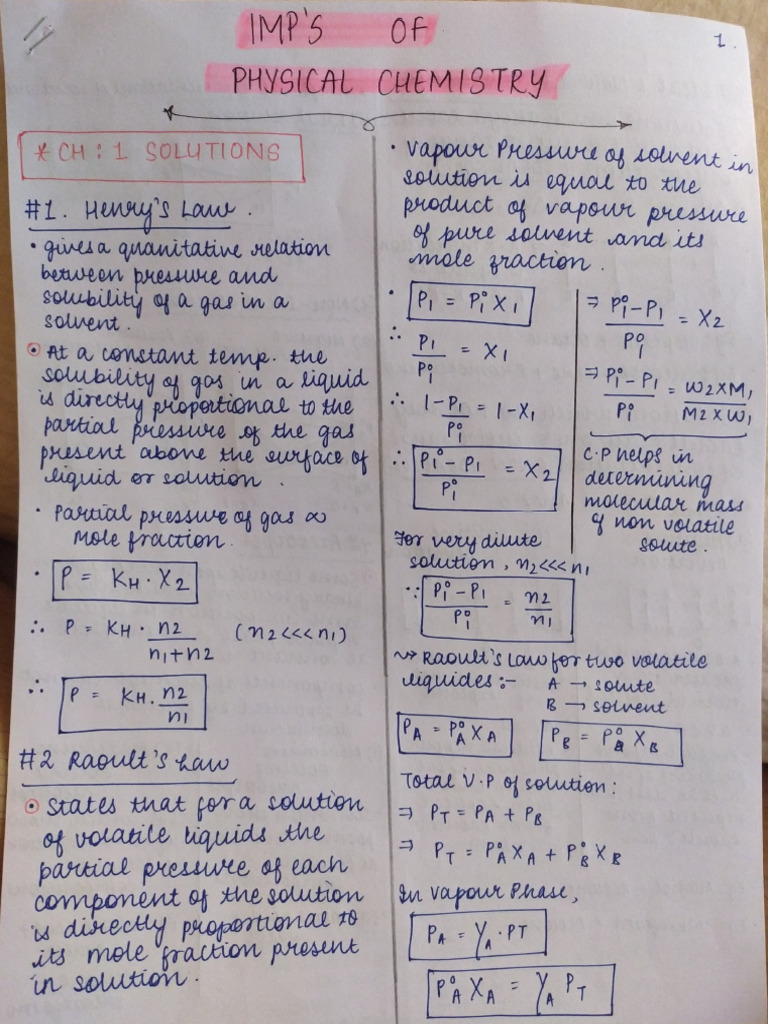 IMP'S OF
PHYSICAL CHEMISTRY
1.
* CH : 1 SOLUTIONS
#1. Henry's Law.
• gives a quanitative relation
between pressure and
solubility of a gas in a
solvent.
⊙ At a constant temp. the
solubility of gas in a liquid
is directly proportional to the
partial pressure of the gas
present above the surface of
liquid or solution.
• Partial pressure of gas ∝
mole fraction.
• P = KH · X2
∴ P = KH · n2/(n1+n2) (n2<<<n1)
∴ P = KH · n2/n1
#2 Raoult's Law
⊙ States that for a solution
of volatile liquids the
partial pressure of each
component of the solution
is directly proportional to
its mole fraction present
in solution.
• Vapour Pressure of solvent in
solution is equal to the
product of vapour pressure
of pure solvent and its
mole fraction.
• P1 = P1° X1
∴ P1/P1° = X1
∴ 1-P1/P1° = 1-X1
∴ (P1°-P1)/P1° = X2
⇒ (P1°-P1)/P1° = X2
⇒ (P1°-P1)/P1° = (W2×M1)/(M2×W1)
C.P helps in
determining
molecular mass
of non volatile
solute.
For very dilute
solution, n2<<<n1
∵ (P1°-P1)/P1° = n2/n1
⤳ Raoult's Law for two volatile
liquides:- A → solute
B → solvent
PA = P°A XA PB = P° XB
Total V.P of solution:
⇒ PT = PA + PB
⇒ PT = P°A XA + P°B XB
In Vapour Phase,
PA = YA · PT
P°A XA = YA PT